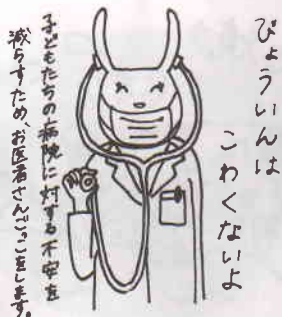 びょういんは
こわくないよ
子どもたちの病院に対する不安を
減らすため、お医者さんごっこをします。